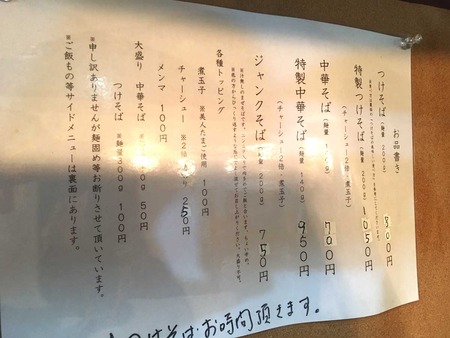 お品書き
つけそば（麺量 200g） 800円
特製つけそば（麺量 200g） 1050円
（チャーシュー2倍・煮玉子）
中華そば（麺量 140g） 700円
特製中華そば（麺量 140g） 950円
（チャーシュー2倍・煮玉子）
ジャンクそば（麺量 200g） 750円
各種トッピング
煮玉子 ※美人たまご使用 100円
チャーシュー ※2倍 250円
メンマ 100円
大盛り 中華そば 50円
つけそば ※麺量300g 100円
※申し訳ありませんが麺固め等お断りさせて頂いています。
※ご飯もの等サイドメニューは裏面にあります。
けそばお時間頂きます。